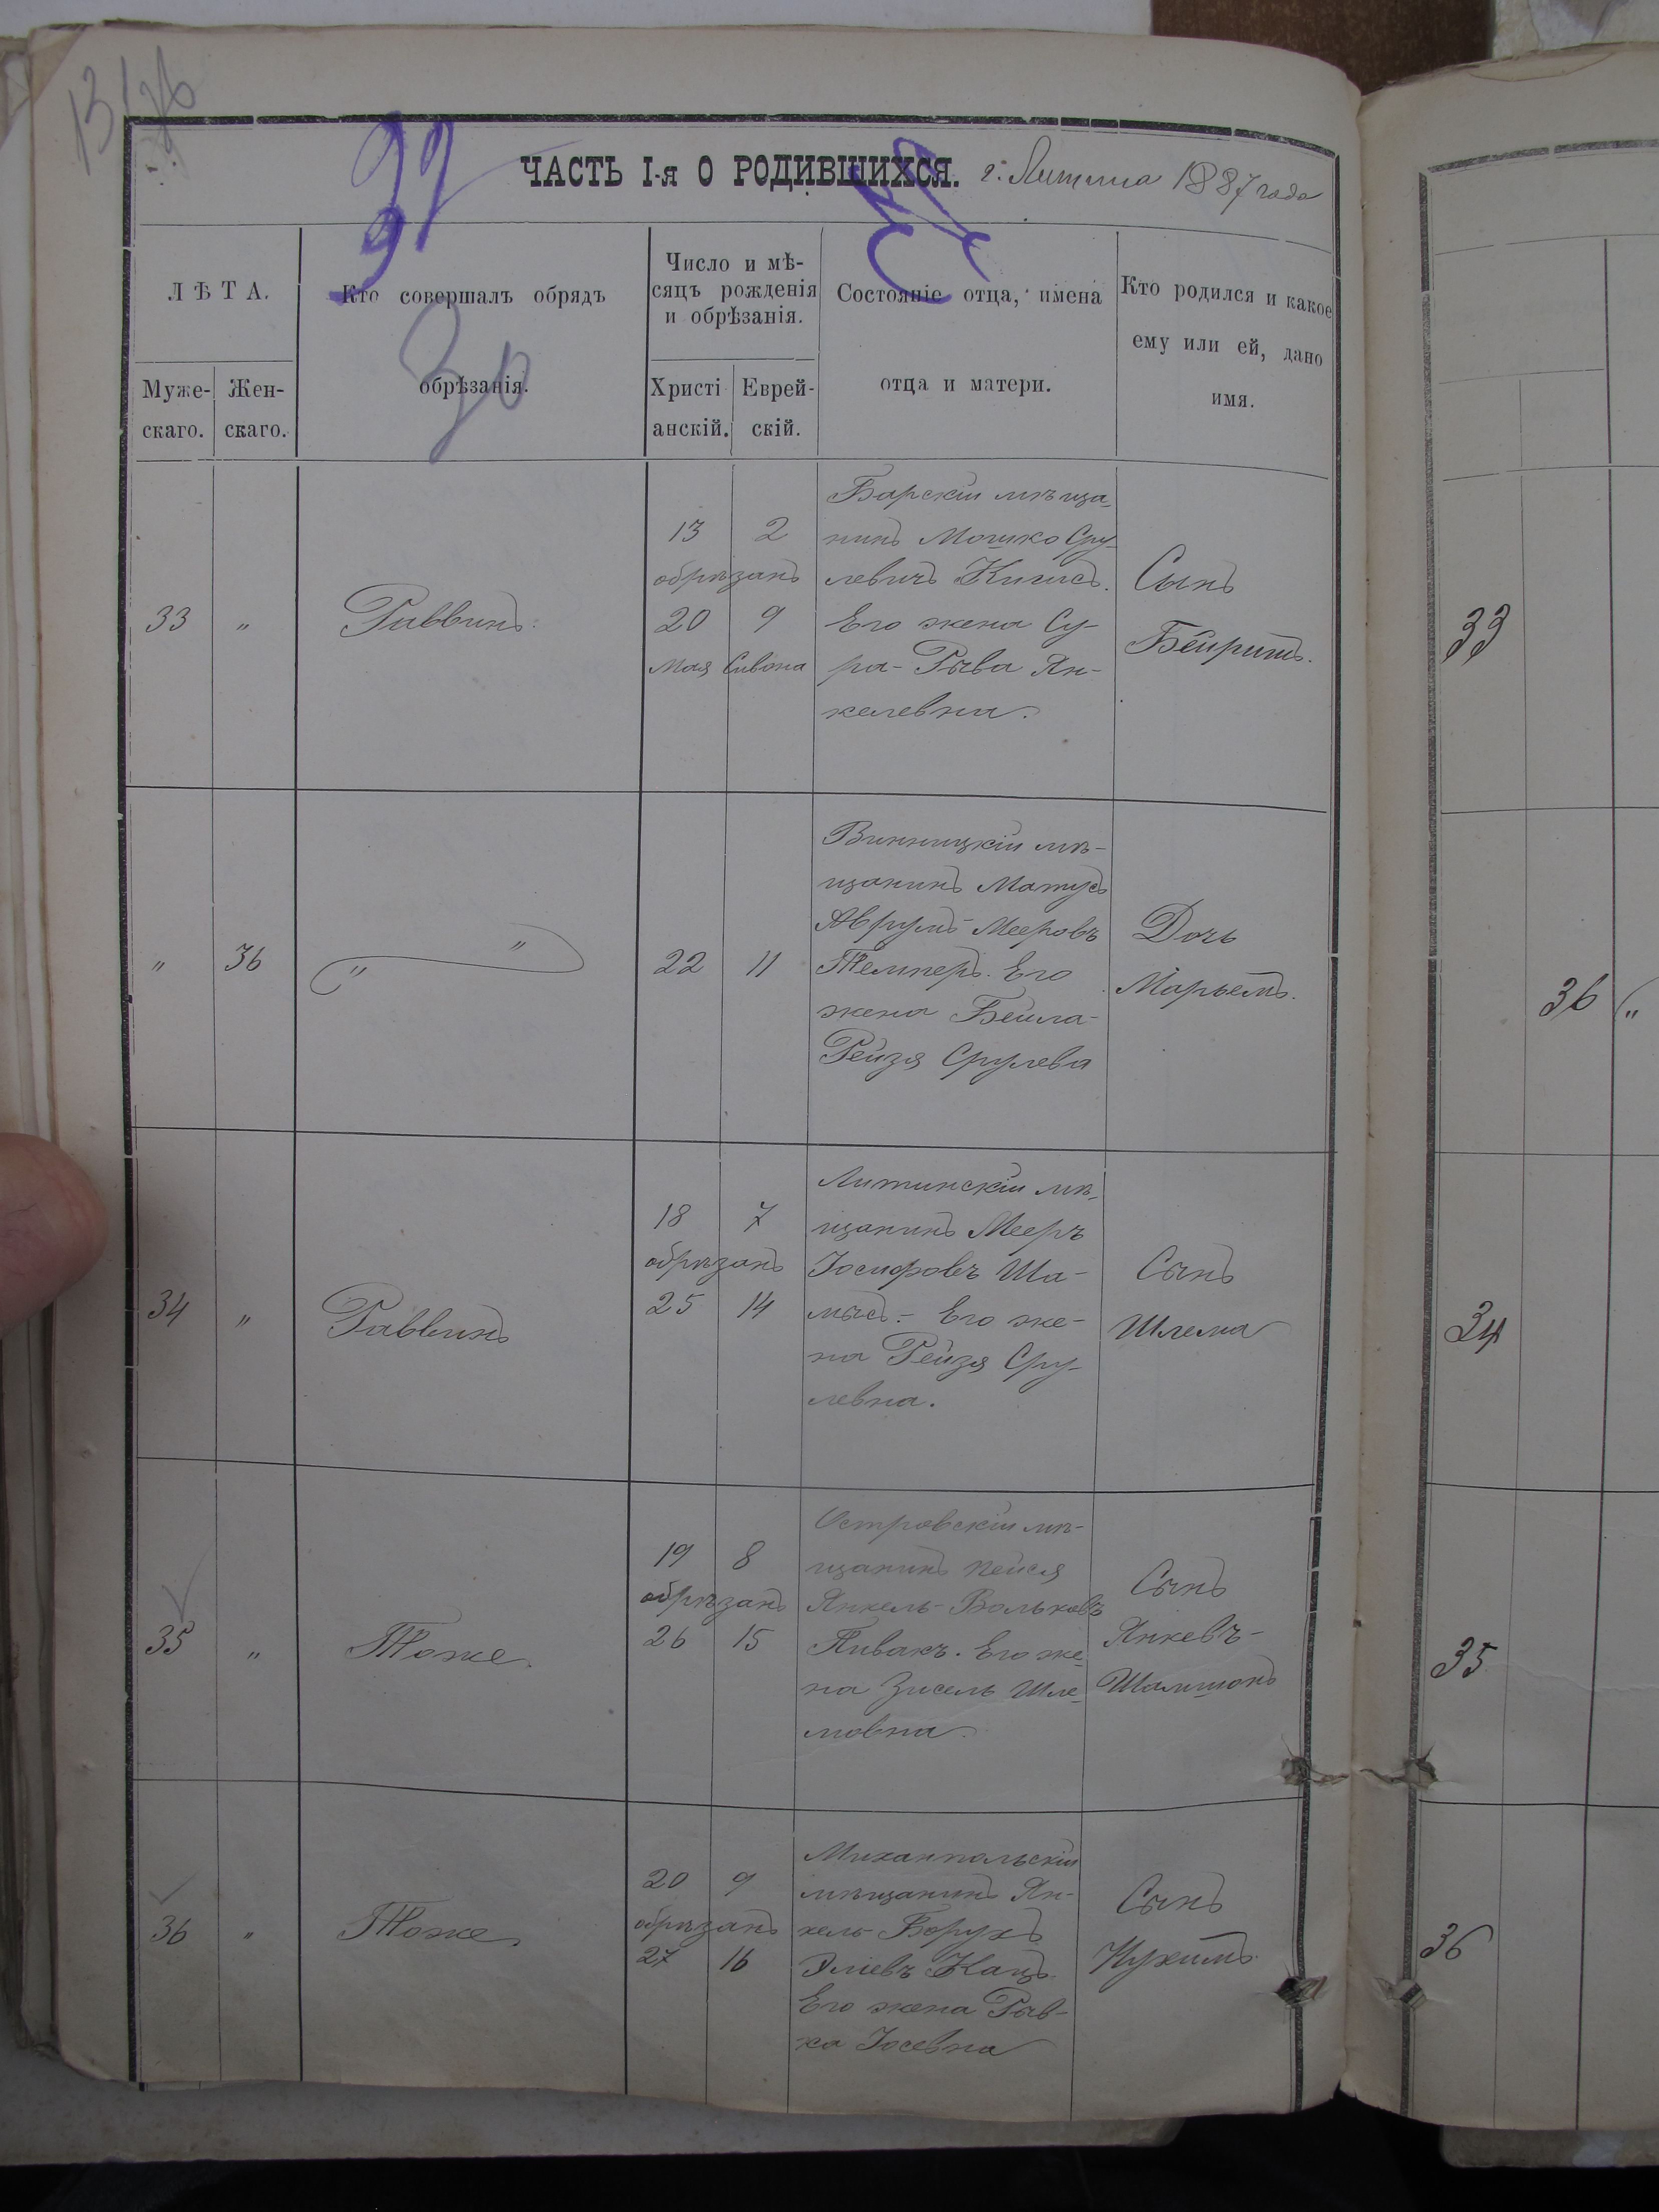 ЧАСТЬ I-я О РОДИВШИХСЯ. г. Литина 1887 года
ЛѢТА.
Муже-
скаго.
Жен-
скаго.
Кто совершалъ обрядъ
обрѣзанія.
30
Число и мѣ-
сяцъ рожденія
и обрѣзанія.
Христі
анскій.
Еврей-
скій.
Состояніе отца, имена
отца и матери.
Кто родился и какое
ему или ей, дано
имя.
33 "
Раввинъ.
13 2
обрѣзанъ
20 9
Мая Сивона
Барскій мѣща-
нинъ Мошко Сру-
левичъ
Его жена Су-
ра-Рыва Ян-
келевна.
Сынъ
33
" 36
" "
22 11
Винницкій мѣ-
щанинъ Матусъ
Аврумъ Мееровъ
Темперъ. Его
жена Бейла-
Рейзя Срулева
Дочь
Марьемъ.
36 "
34 "
Раввинъ
18 7
обрѣзанъ
25 14
Литинскій мѣ-
щанинъ Мееръ
Іосифовъ Ша-
мысъ. Его же-
на Рейзя Сру-
левна.
Сынъ
Шлема
34
35 "
Тоже.
19 8
обрѣзанъ
26 15
Островскій мѣ-
щанинъ Пейся
Янкель-Вольковъ
Пивакъ. Его же-
на Зисель Шле-
мовна.
Сынъ
Янкевъ-
Шамшонъ
35
36 "
Тоже.
20 9
обрѣзанъ
27 16
Михампольскій
мѣщанинъ Ян-
кель-Борухъ
Эліевъ Кацъ.
Его жена Рыв-
ка Іосевна
Сынъ
Нухимъ.
36